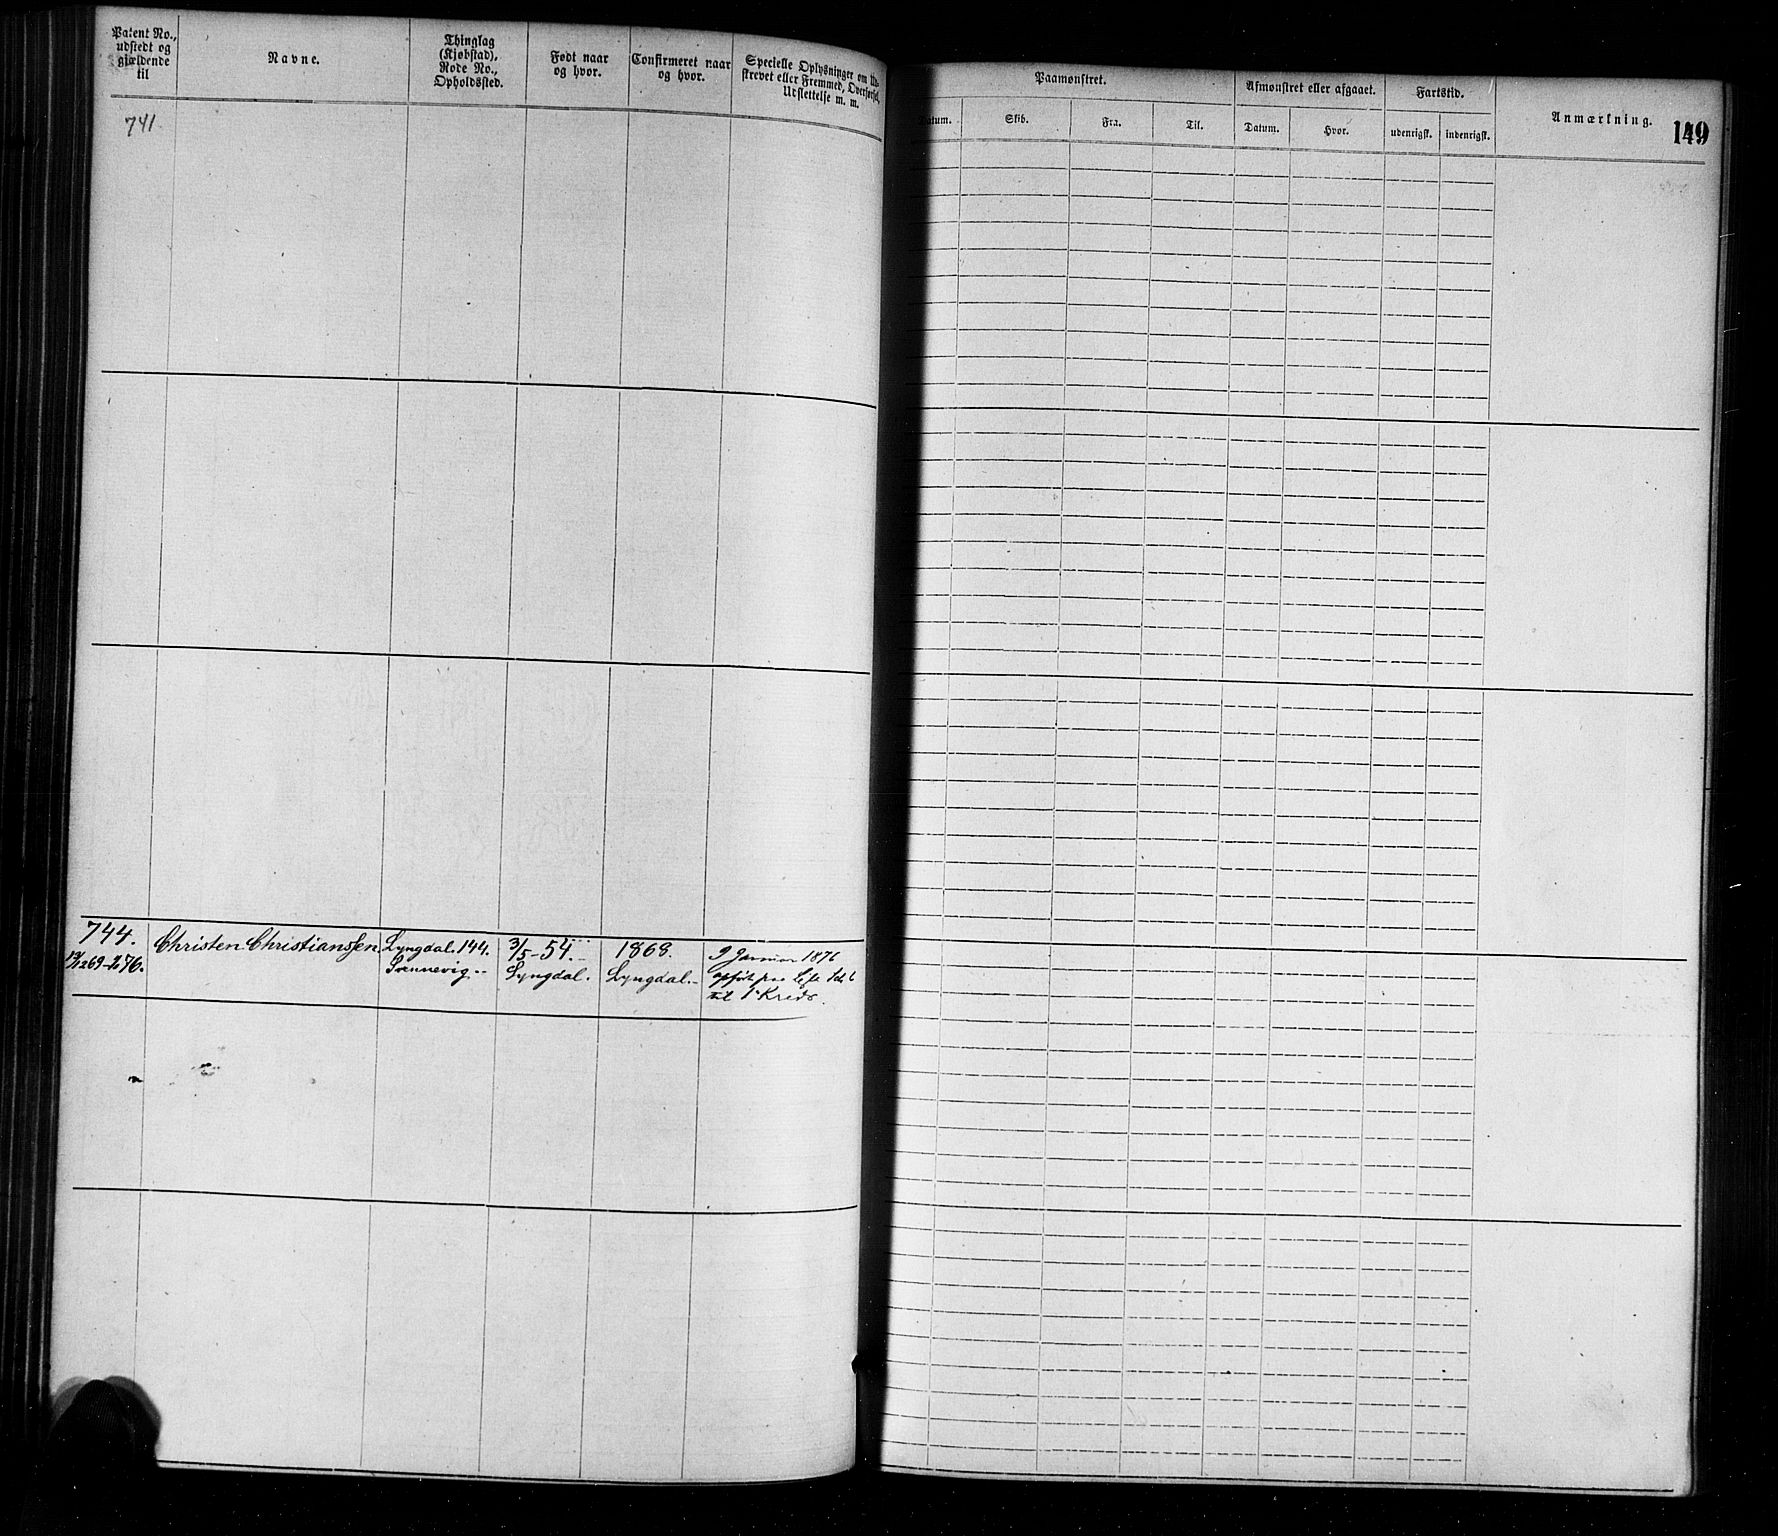 Patent No.,
udstedt og
gjældende
til
Navne.
Thinglag
(Kjøbstad),
Rode No.,
Opholdssted.
Født naar
og hvor.
Confirmeret naar
og hvor.
Specielle Oplysninger om
strevet eller Fremmed, Overførsel,
Udslettelse m. m.
Paamønstret.
Afmønstret eller afgaaet.
Fartstid.
Anmærkning.
149
Datum.
Skib.
Fra.
Til.
Datum.
Hvor.
udenrigsk.
indenrigsk.
741
744.
Christen Christianssen
Lyngdal. 144.
3/5-54.
1868.
9 Januar 1876
Lyngdal.
Lyngdal.
til 1ste Kreds.